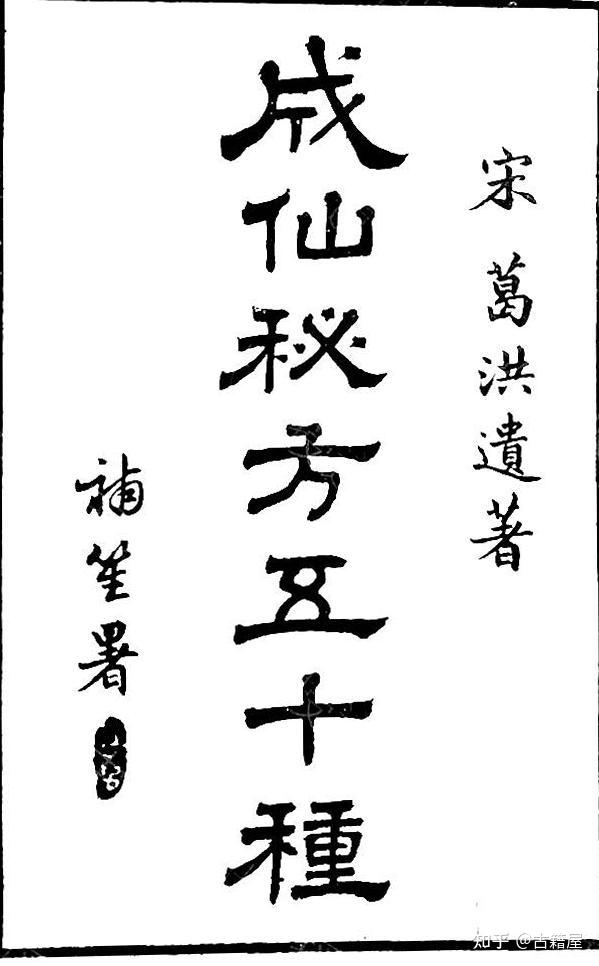 宋 葛洪遺著
成仙秘方五十種
補笙署
知乎 @古籍屋